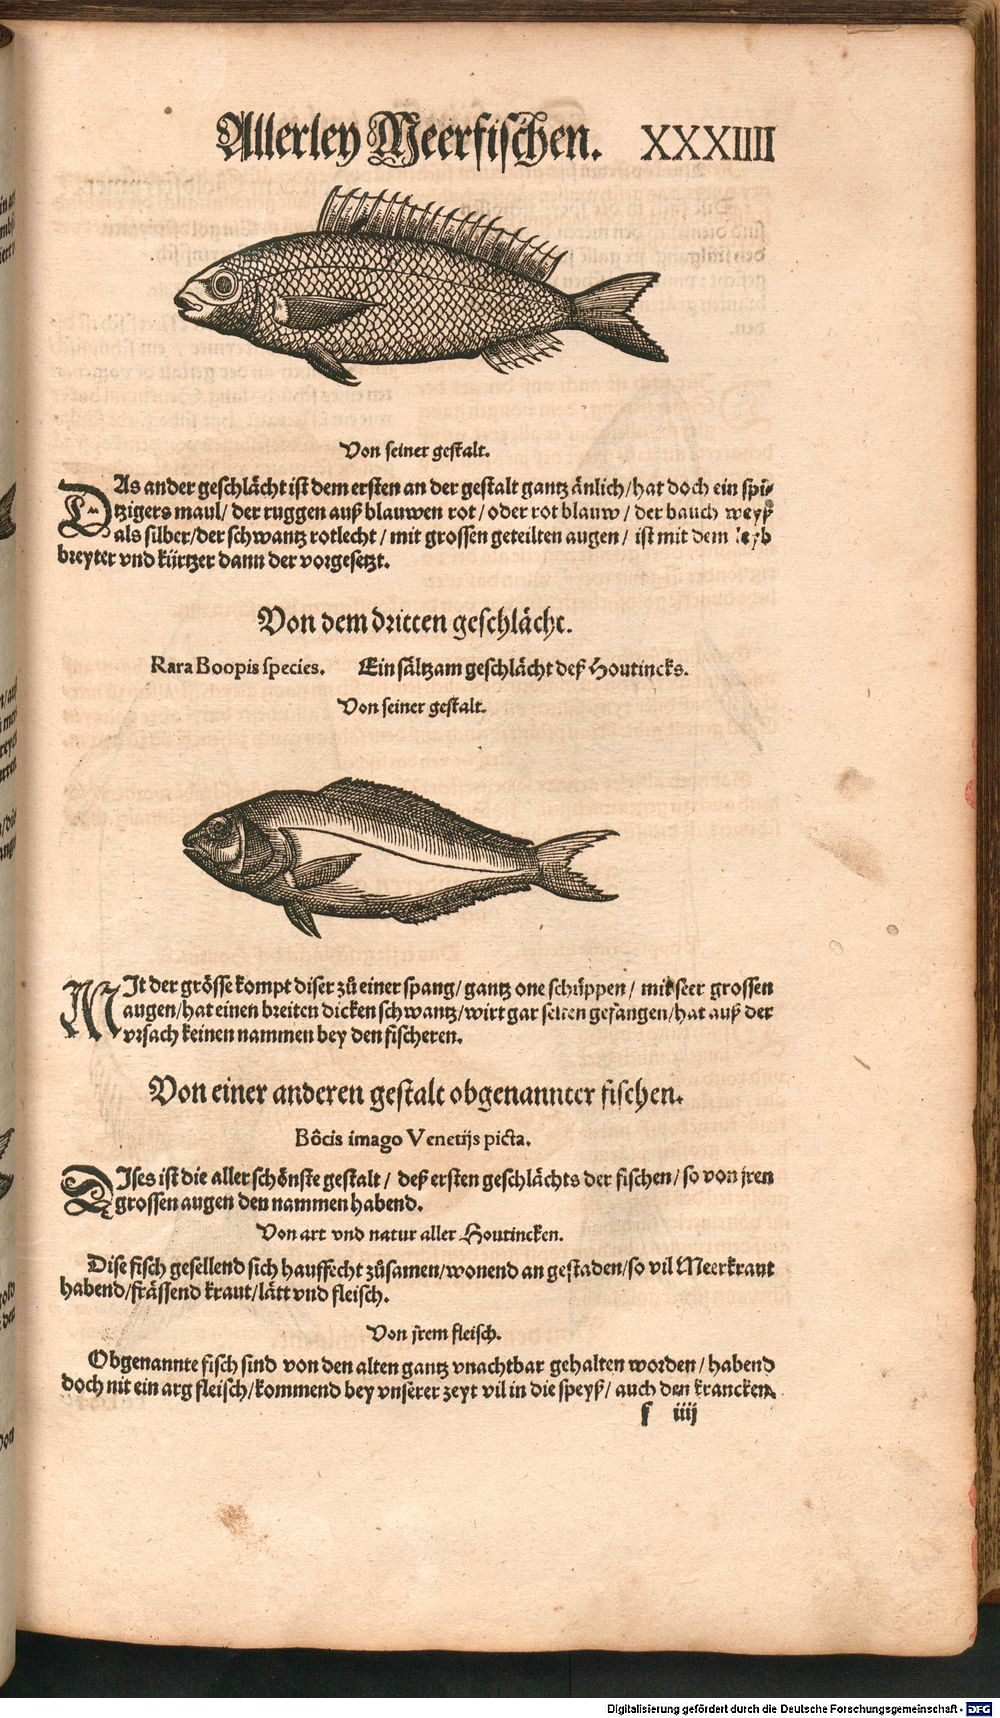 Allerley Meerfischen. XXXIIII
Von seiner gestalt.
DAs ander geschlächt ist dem ersten an der gestalt gantz änlich/hat doch ein spi-
tzigers maul/ der ruggen auß blauwen rot/ oder rot blauw/ der bauch weyß
als silber/der schwantz rotlecht/ mit grossen geteilten augen/ ist mit dem leyb
breyter vnd kürtzer dann der vorgesetzt.
Von dem dritten geschlächt.
Rara Boopis species. Ein sältzam geschlächt deß Houtincks.
Von seiner gestalt.
MIt der grösse kompt diser zů einer spang/ gantz one schüppen/ mit seer grossen
augen/hat einen breiten dicken schwantz/wirt gar selten gefangen/hat auß der
vrsach keinen nammen bey den fischeren.
Von einer anderen gestalt obgenannter fischen.
Bôcis imago Venetijs picta.
DIses ist die aller schönste gestalt/ deß ersten geschlächts der fischen/so von jren
grossen augen den nammen habend.
Von art vnd natur aller Houtincken.
Dise fisch gesellend sich hauffecht zůsamen/wonend an gestaden/so vil Meerkraut
habend/frässend kraut/lätt vnd fleisch.
Von jrem fleisch.
Obgenannte fisch sind von den alten gantz vnachtbar gehalten worden/habend
doch nit ein arg fleisch/kommend bey vnserer zeyt vil in die speyß/ auch den krancken.
f iiij
Digitalisierung gefördert durch die Deutsche Forschungsgemeinschaft - DFG